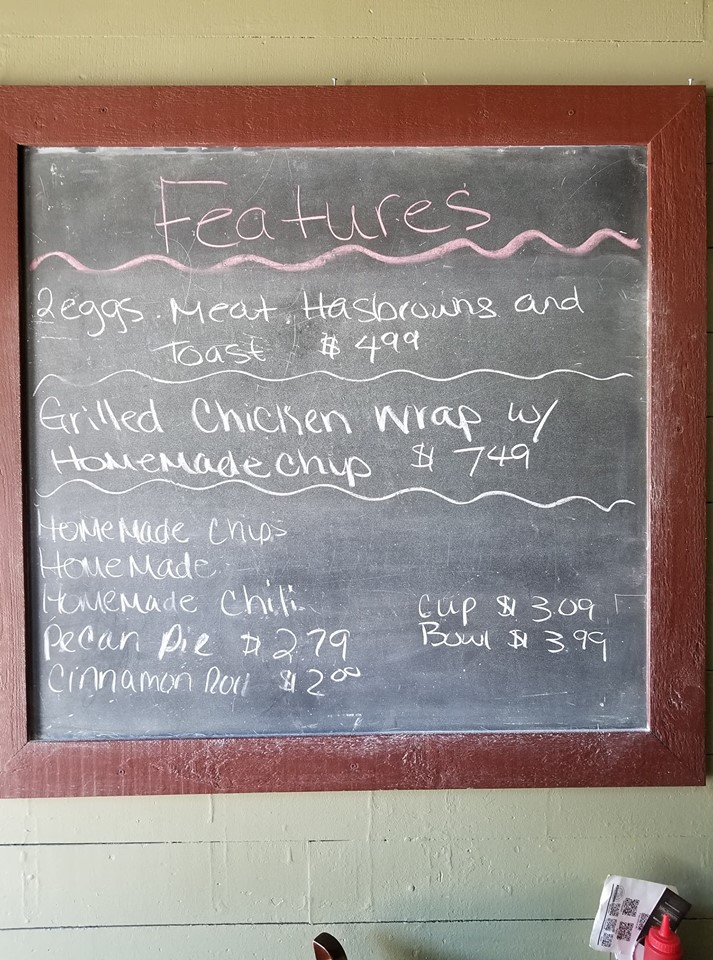 Features
2eggs. Meat, Hasbrowns and
Toast $ 499
Grilled Chicken Wrap w/
HomeMade chip $ 749
HomeMade Chips
HomeMade
HomeMade Chili Cup $ 3.09
Pecan Pie $ 2.79 Bowl $ 3.99
Cinnamon Roll $ 200